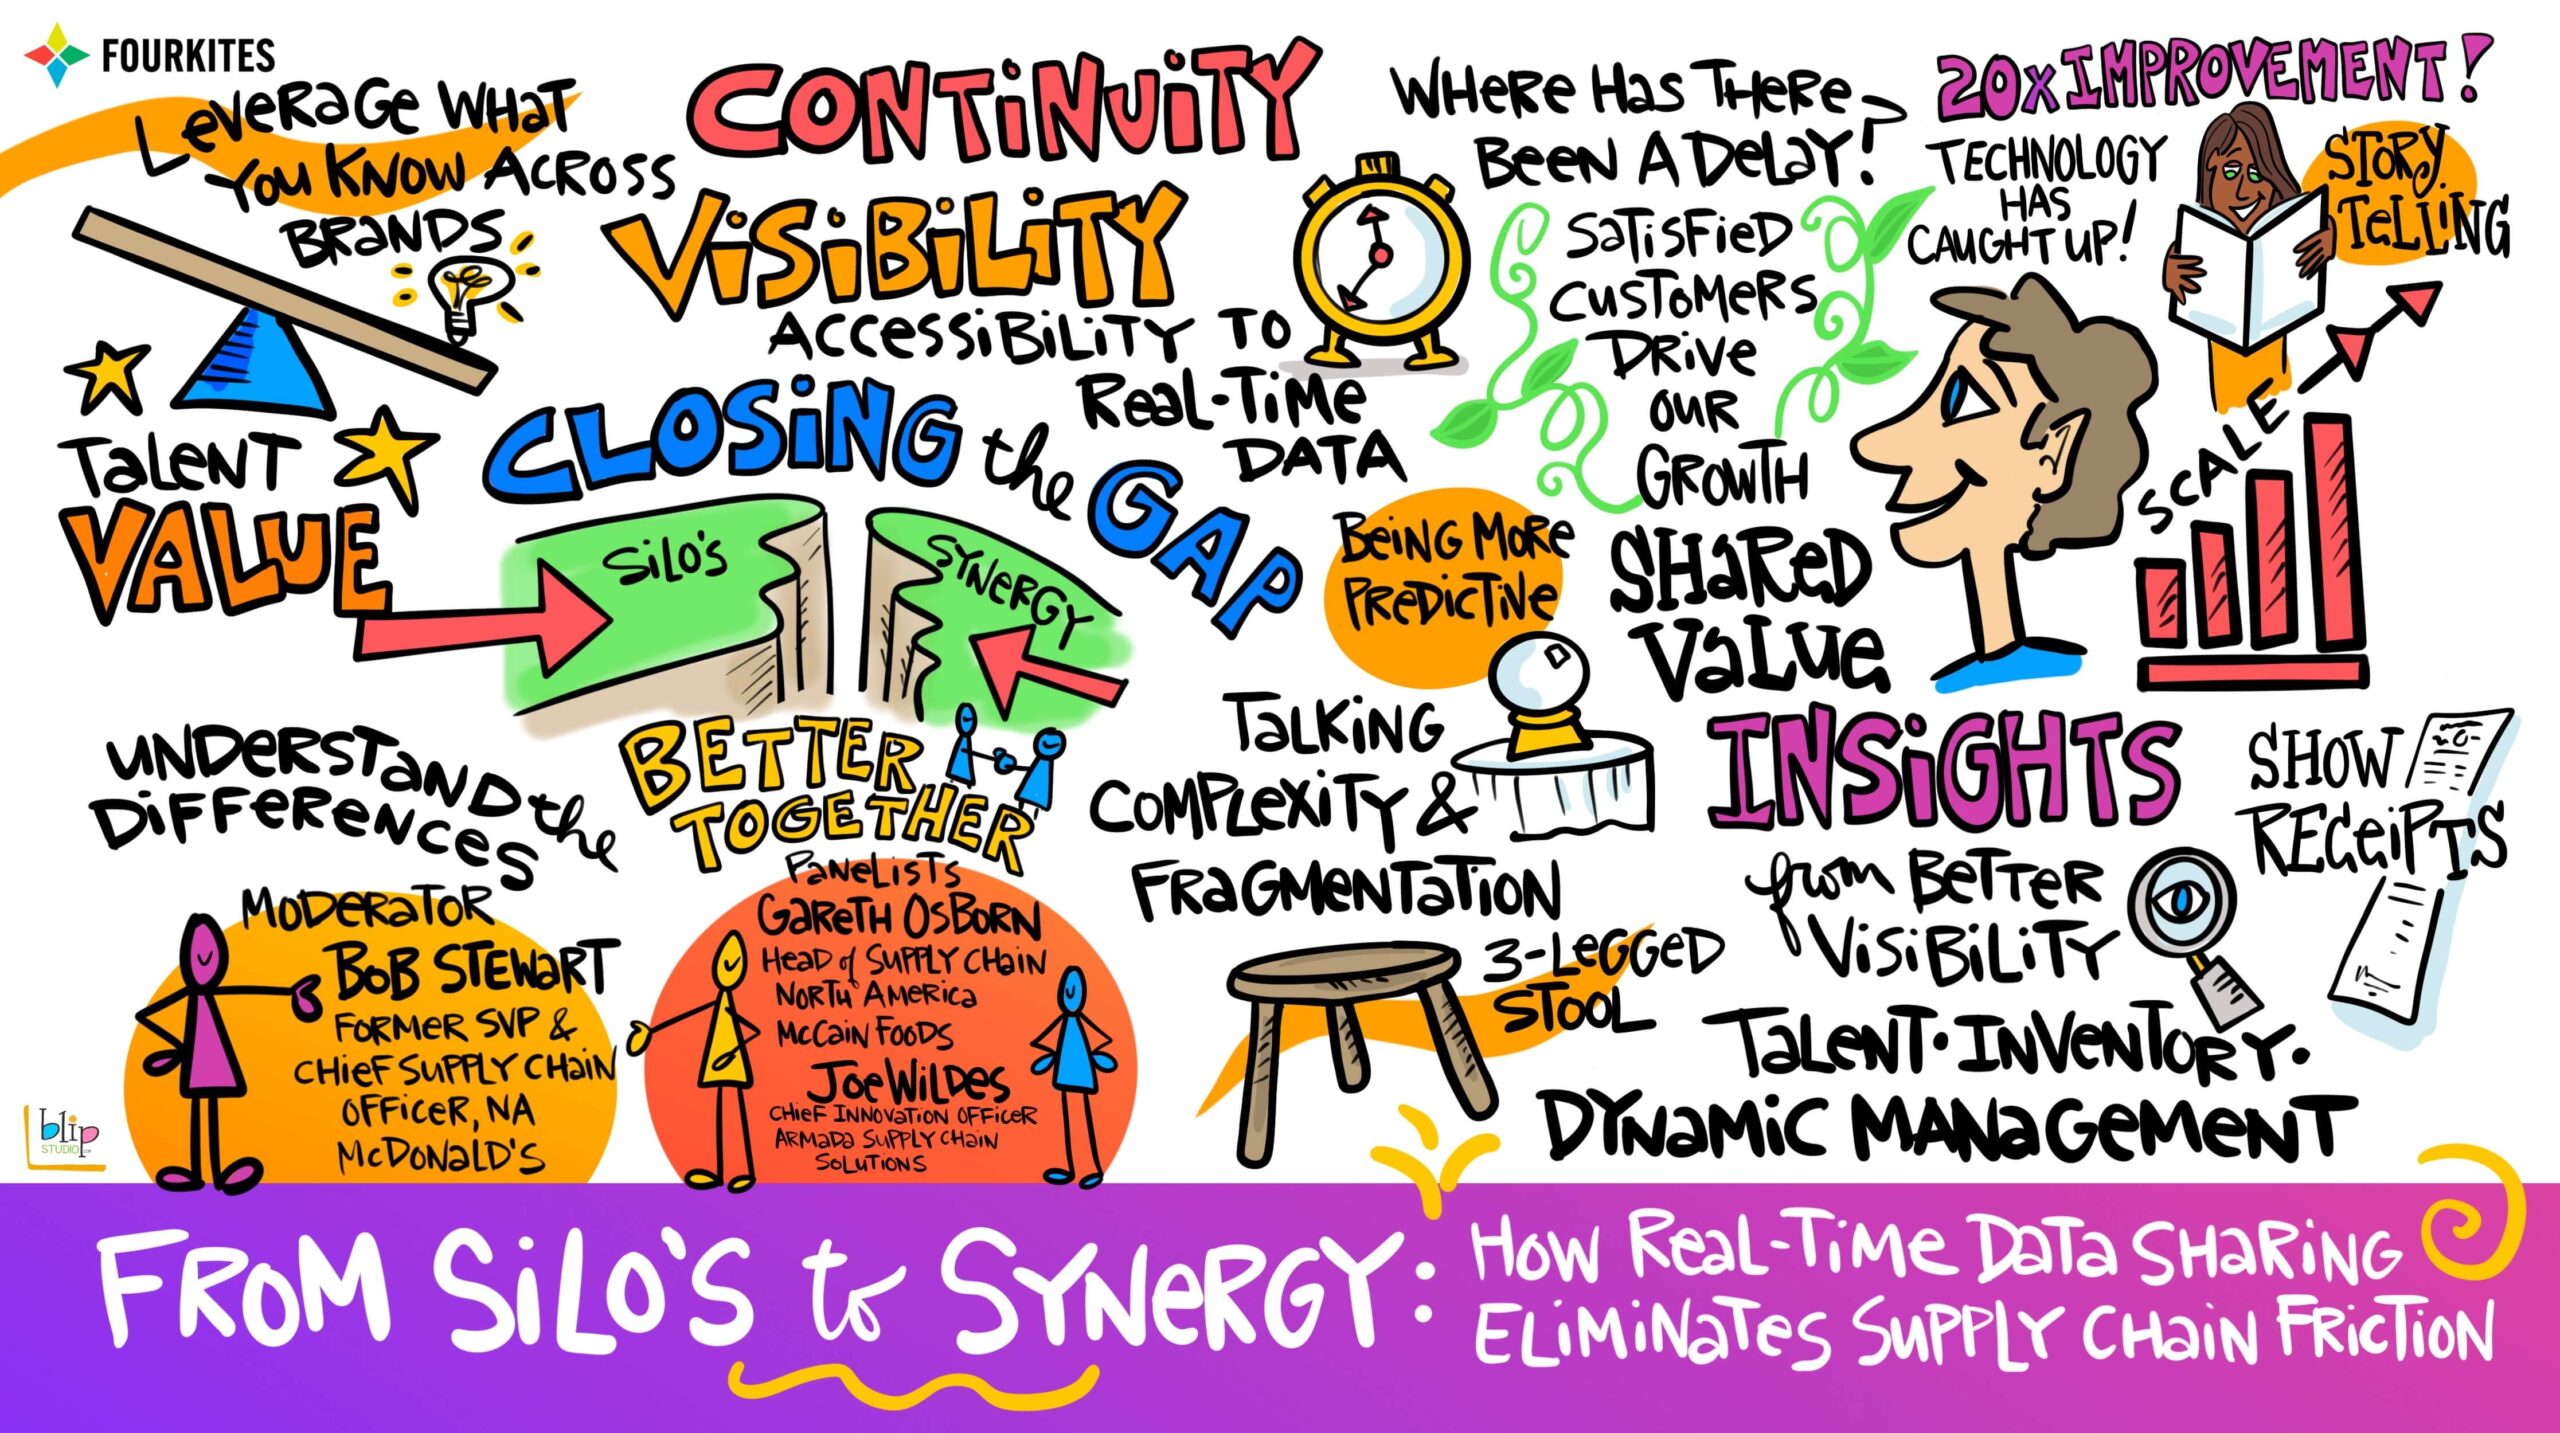 FOURKITES
Leverage What
You Know Across
Brands
Talent
Value
Continuity
Visibility
Accessibility to
Real-Time
Data
Closing the Gap
Silo's
Synergy
Where Has There
Been A Delay?
Satisfied
Customers
Drive
Our
Growth
20x Improvement!
Technology
Has
Caught Up!
Story
Telling
Scale
Being More
Predictive
Shared
Value
Understand the
Differences
Better
Together
Talking
Complexity &
Fragmentation
3-Legged
Stool
Insights
from Better
Visibility
Show
Receipts
Talent · Inventory ·
Dynamic Management
Moderator
Bob Stewart
Former SVP &
Chief Supply Chain
Officer, NA
McDonald's
Panelists
Gareth Osborn
Head of Supply Chain
North America
McCain Foods
Joe Wildes
Chief Innovation Officer
Armada Supply Chain
Solutions
blip
STUDIO
From Silo's to Synergy:
How Real-Time Data Sharing
Eliminates Supply Chain Friction